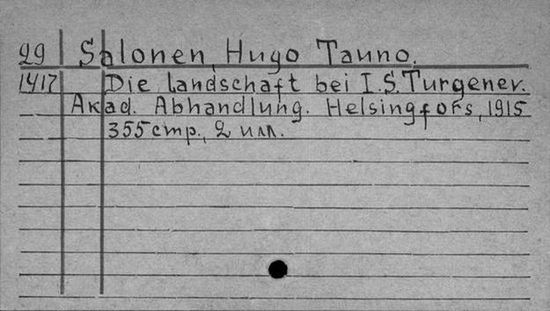 29 Salonen, Hugo Tauno.
1417 Die landschaft bei I.S.Turgenev.
Akad. Abhandlung. Helsingfors, 1915
355 стр., 2 илл.